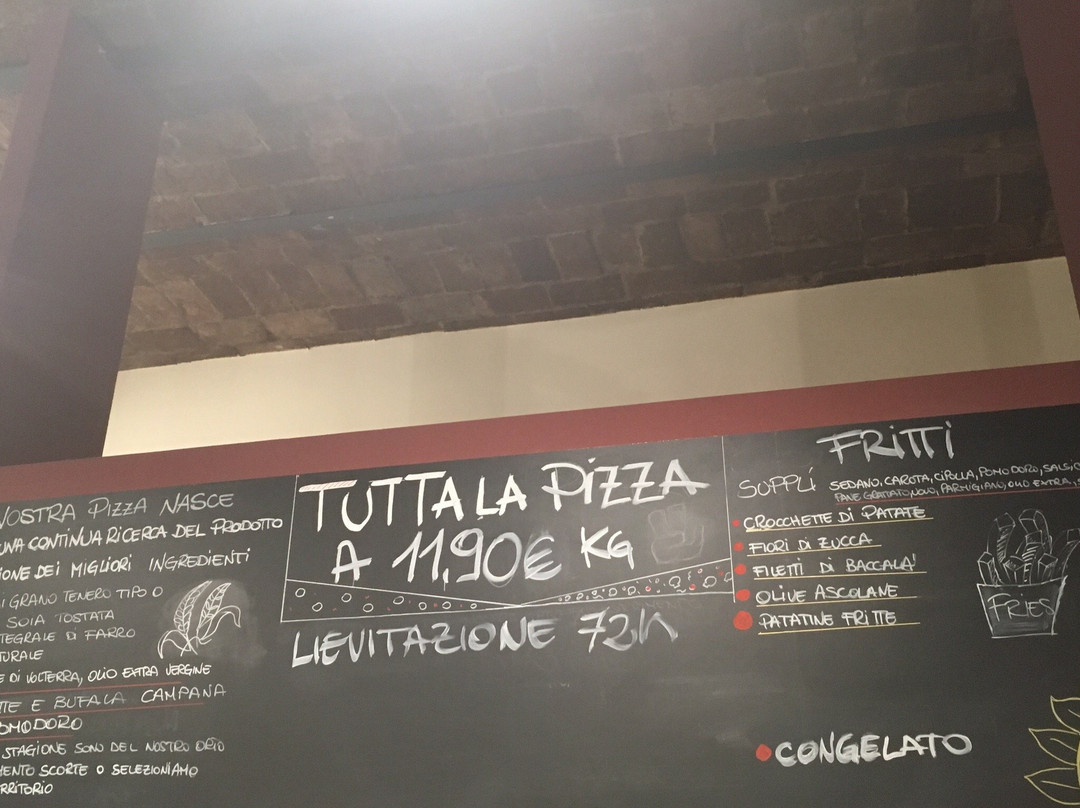 NOSTRA PIZZA NASCE
UNA CONTINUA RICERCA DEL PRODOTTO
IONE DEI MIGLIORI INGREDIENTI
DI GRANO TENERO TIPO 0
SOIA TOSTATA
TEGRALE DI FARRO
TURALE
E DI VOLTERRA, OLIO EXTRA VERGINE
TTE E BUFALA CAMPANA
OMODORO
STAGIONE SONO DEL NOSTRO ORTO
MENTO SCORTE O SELEZIONIAMO
RRITORIO
TUTTA LA PIZZA
A 11,90€ KG
LIEVITAZIONE 72h
FRITTI
SUPPLÍ SEDANO, CAROTA, CIPOLLA, POMODORO, SALSIC
PANE GRATTATO, UOVO, PARMIGIANO, OLIO EXTRA, S
CROCCHETTE DI PATATE
FIORI DI ZUCCA
FILETTI DI BACCALA'
OLIVE ASCOLANE
PATATINE FRITTE
FRIES
CONGELATO